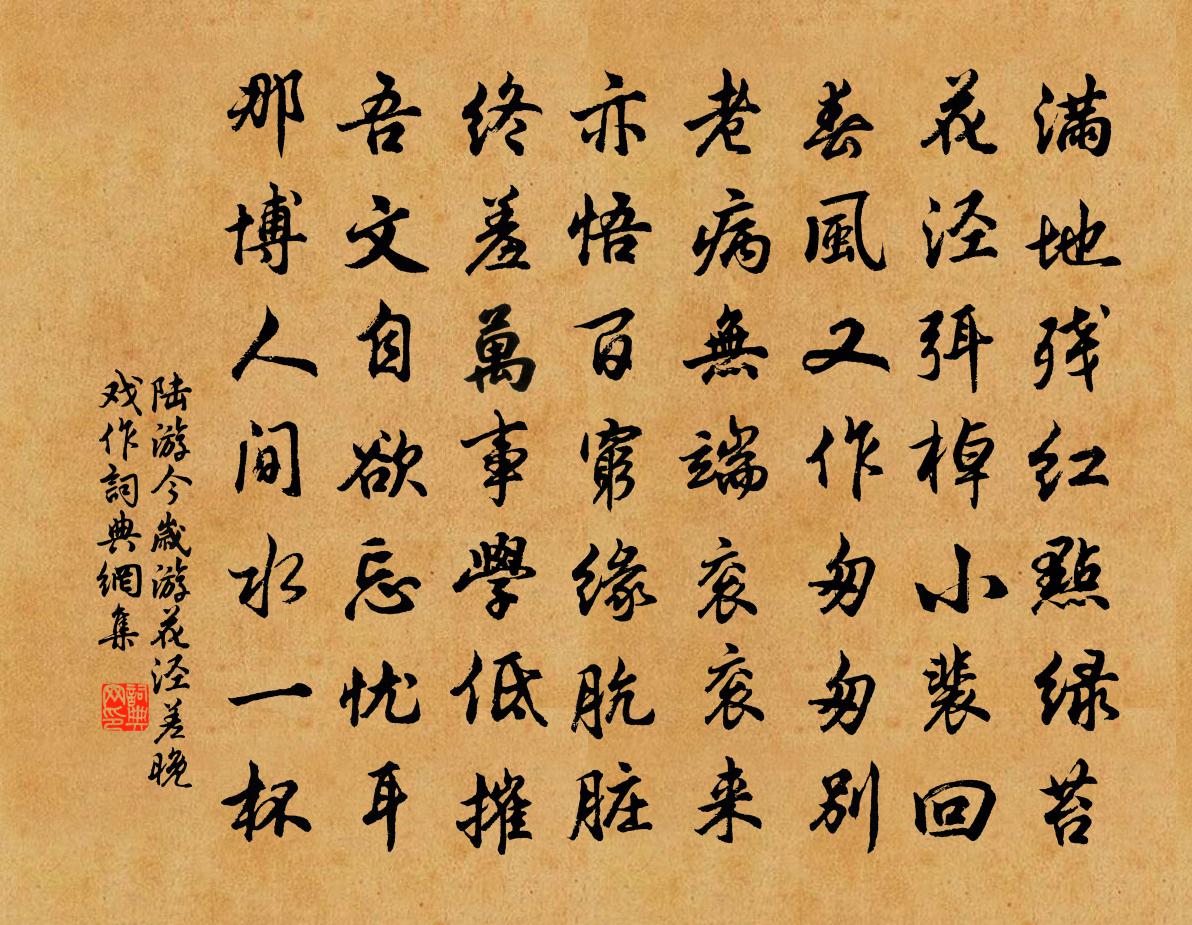 满地残红點绿苔
花泾弭棹小裴回
春風又作匆匆别
老病無端衮衮来
亦悟百窮缘肮脏
终羞萬事學低摧
吾文自欲忘忧耳
那博人间水一杯
陆游今歲游花泾差晚
戏作詞典網集
詞典网印